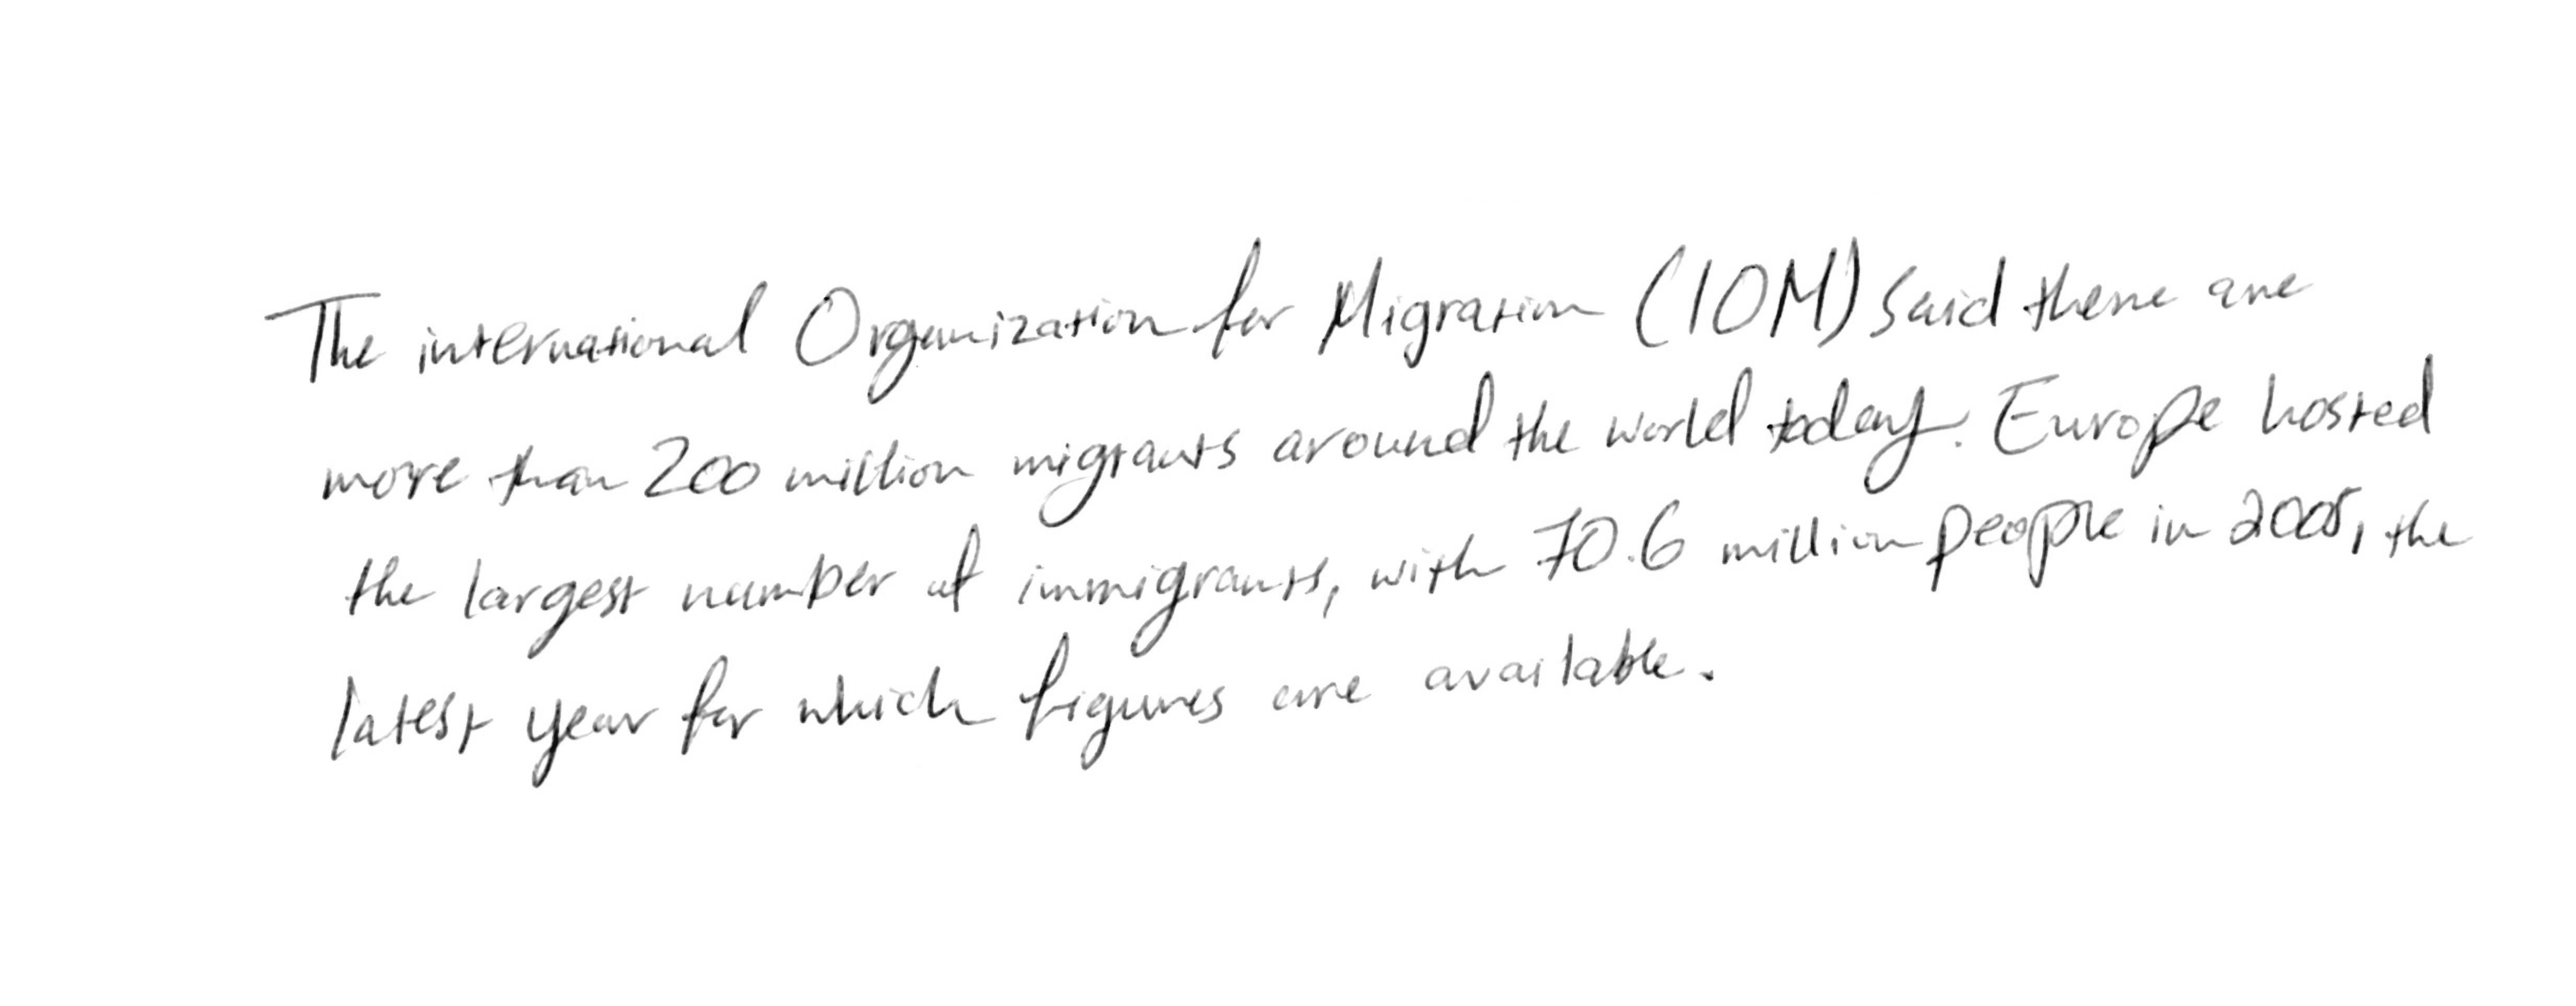 The international Organization for Migration (IOM) said there are
more than 200 million migrants around the world today. Europe hosted
the largest number of immigrants, with 70.6 million people in 2005, the
latest year for which figures are available.